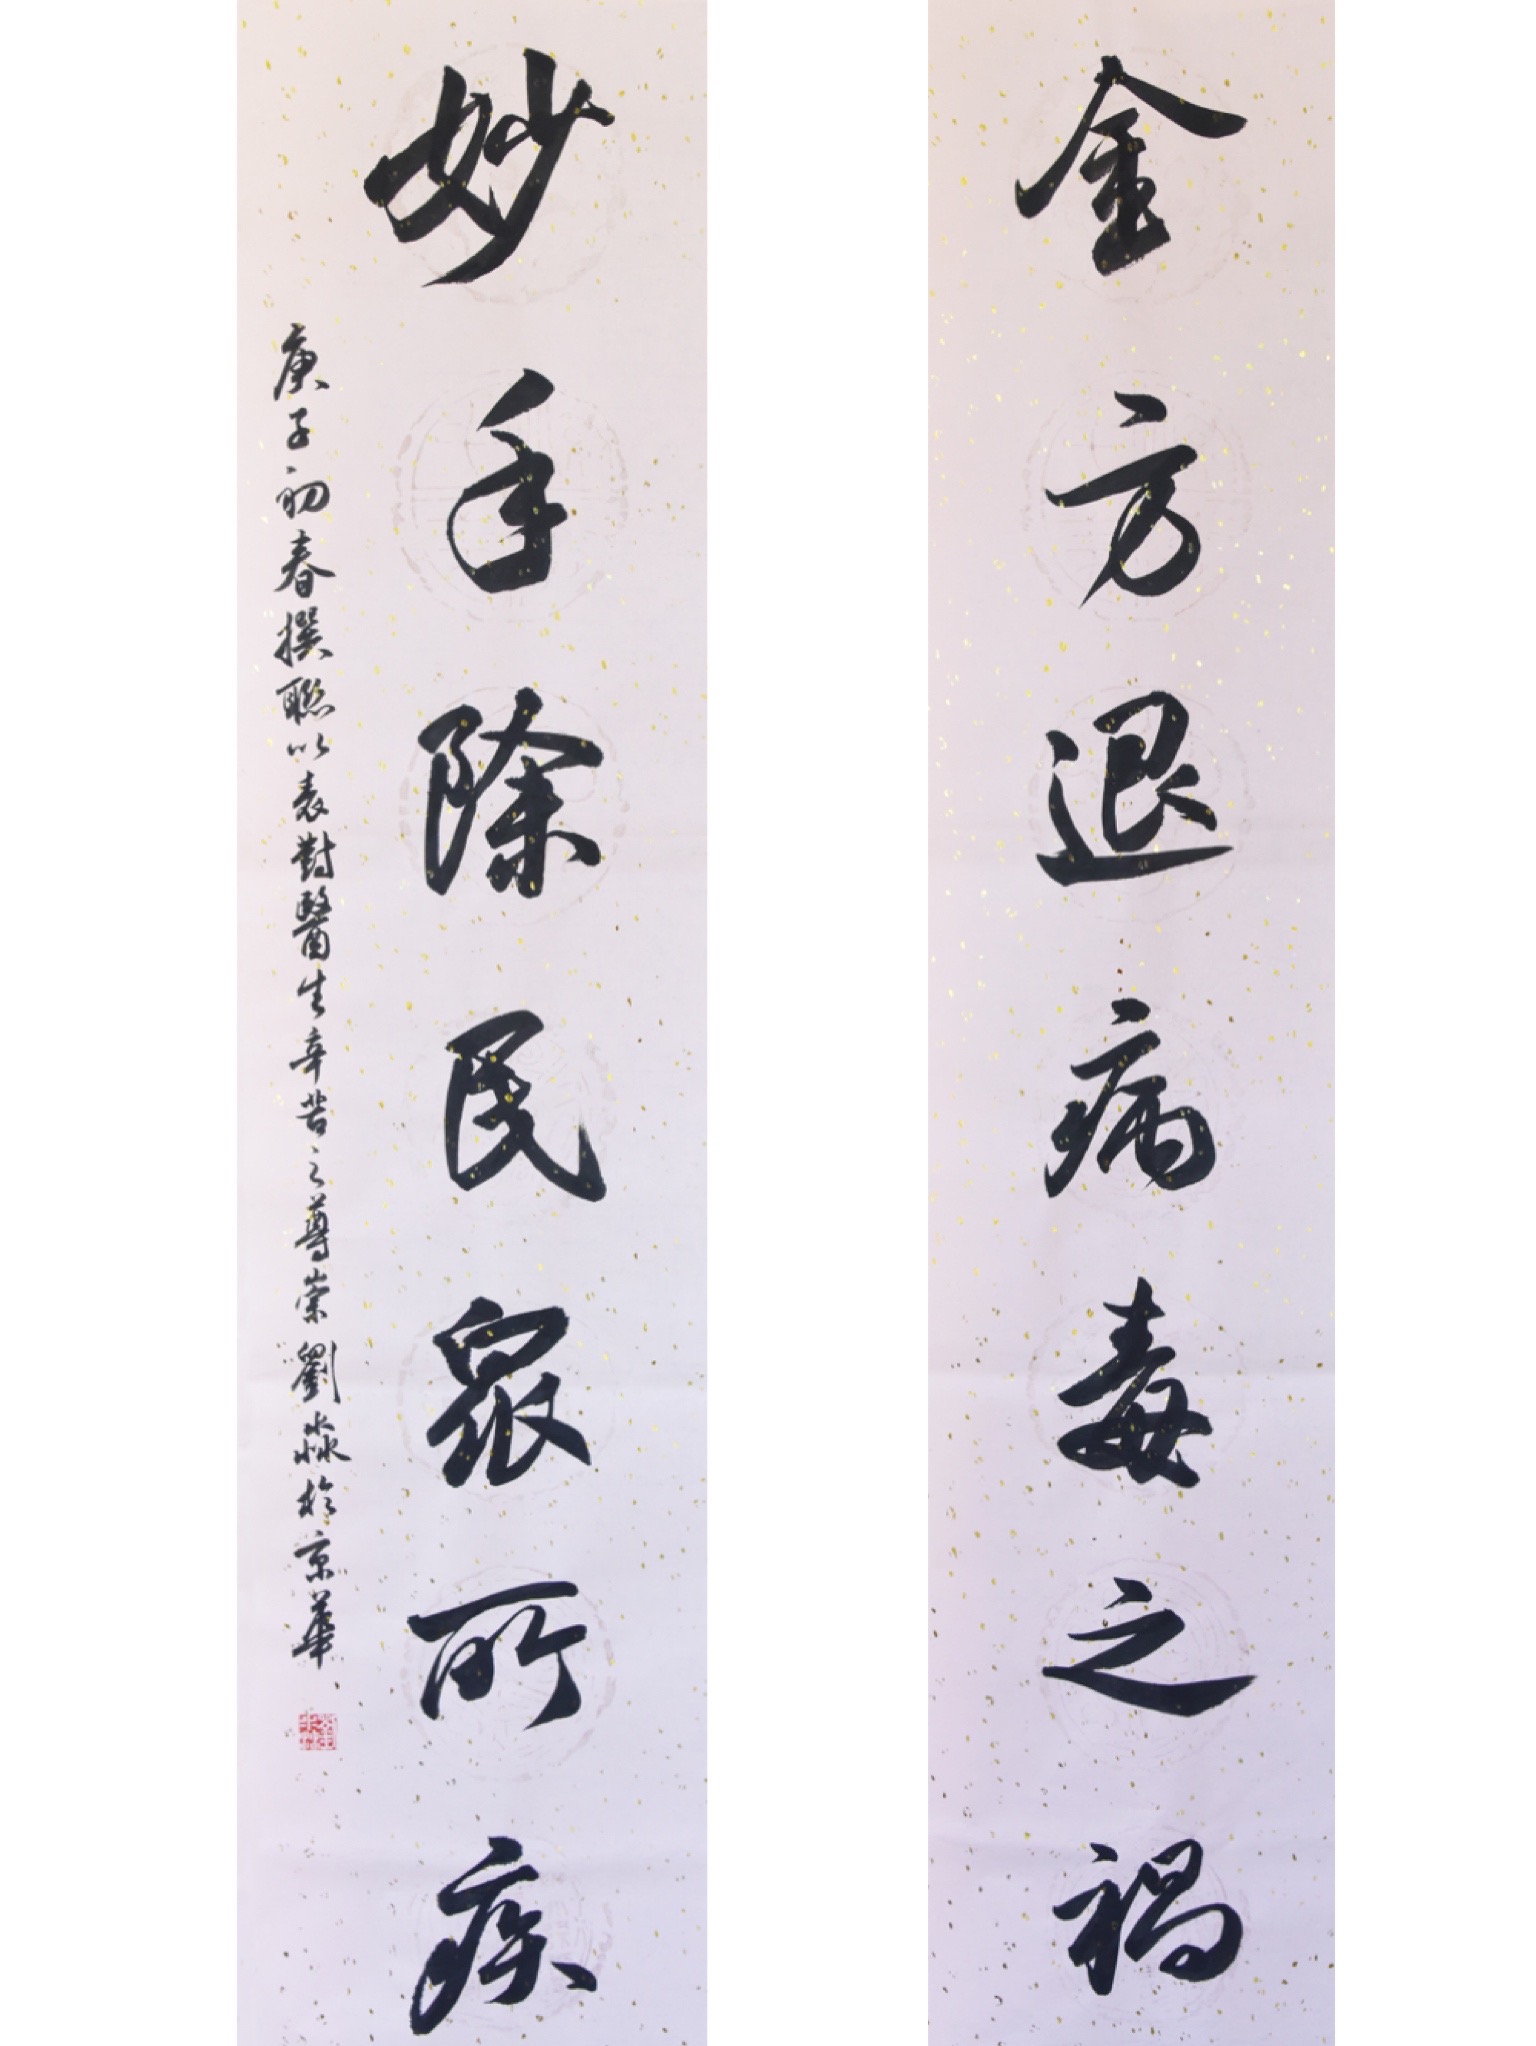 金方退病毒之禍
妙手除民衆所疾
庚子初春撰聯以表對醫生辛苦之尊崇劉淼於京華